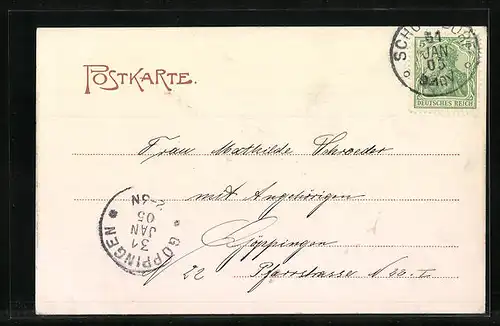 POSTKARTE.
31
JAN
05
5
DEUTSCHES REICH
Frau Mathilde Schroeder
mit Angehörigen
Göppingen
22 Pfarrstrasse No 22 I
GÖPPINGEN
31
JAN
05